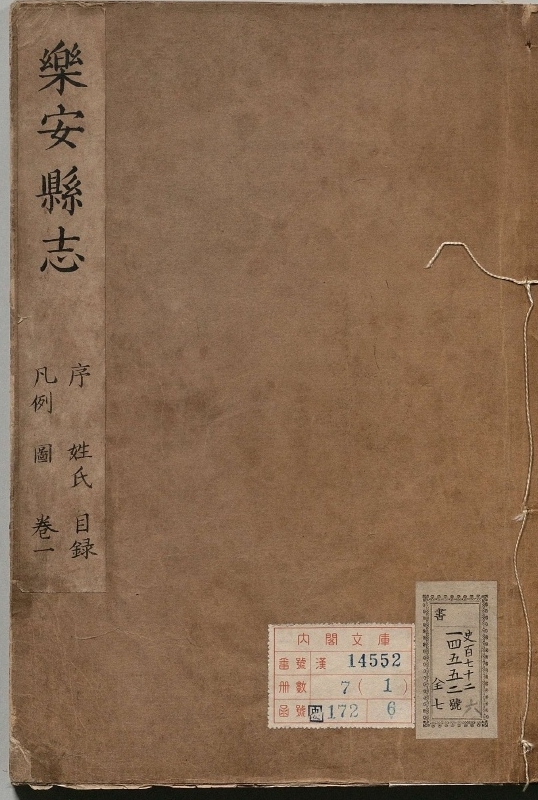 樂安縣志
序 姓氏 目録
凡例 圖 卷一
內閣文庫
番號 漢 14552
冊數 7 (1)
函號 史 172 6
書
史百七十二
一四五五二號
全七
六